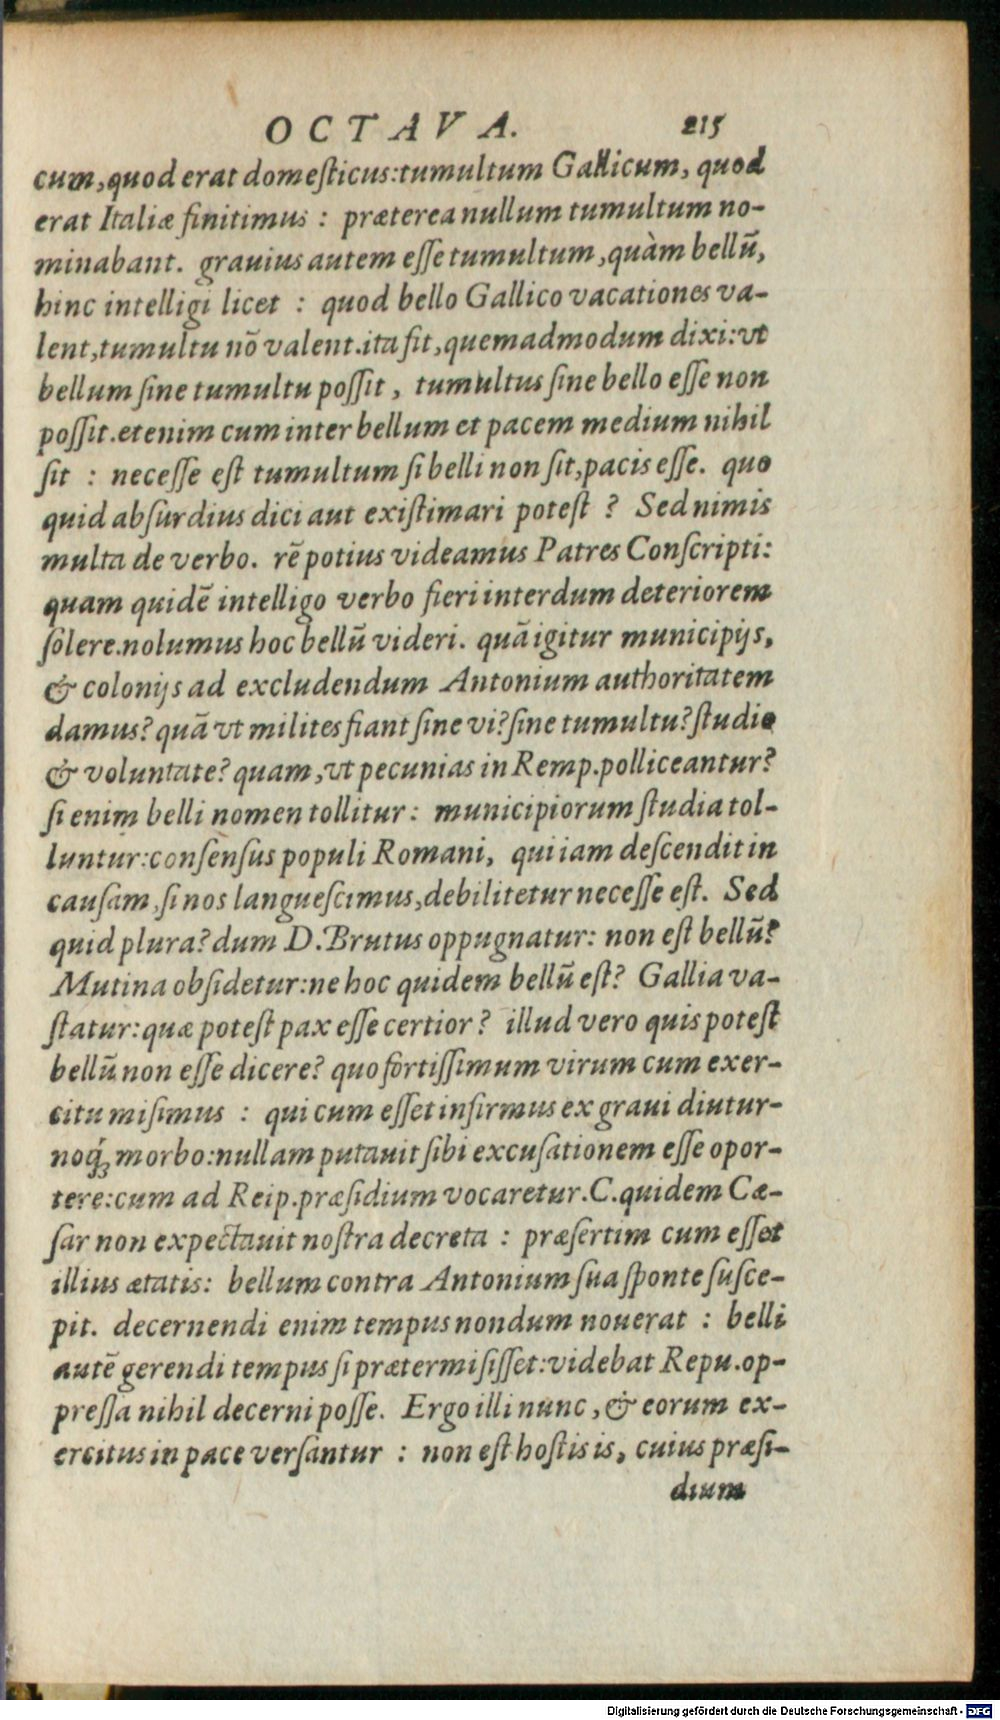 OCTAVA. 215
cum, quod erat domesticus: tumultum Gallicum, quod
erat Italiæ finitimus : præterea nullum tumultum no-
minabant. grauius autem esse tumultum, quàm bellũ,
hinc intelligi licet : quod bello Gallico vacationes va-
lent, tumultu nõ valent. ita fit, quemadmodum dixi: vt
bellum sine tumultu possit, tumultus sine bello esse non
possit. etenim cum inter bellum et pacem medium nihil
sit : necesse est tumultum si belli non sit, pacis esse. quo
quid absurdius dici aut existimari potest ? Sed nimis
multa de verbo. rẽ potius videamus Patres Conscripti:
quam quidẽ intelligo verbo fieri interdum deteriorem
solere. nolumus hoc bellũ videri. quã igitur municipijs,
& colonijs ad excludendum Antonium authoritatem
damus? quã vt milites fiant sine vi? sine tumultu? studio
& voluntate? quam, vt pecunias in Remp. polliceantur?
si enim belli nomen tollitur: municipiorum studia tol-
luntur: consensus populi Romani, qui iam descendit in
causam, si nos languescimus, debilitetur necesse est. Sed
quid plura? dum D. Brutus oppugnatur: non est bellũ?
Mutina obsidetur: ne hoc quidem bellũ est? Gallia va-
statur: quæ potest pax esse certior? illud vero quis potest
bellũ non esse dicere? quo fortissimum virum cum exer-
citu misimus : qui cum esset insirmus ex graui diutur-
noq́ꝫ morbo: nullam putauit sibi excusationem esse opor-
tere: cum ad Reip. præsidium vocaretur. C. quidem Cæ-
sar non expectauit nostra decreta : præsertim cum esset
illius ætatis: bellum contra Antonium sua sponte susce-
pit. decernendi enim tempus nondum nouerat : belli
autẽ gerendi tempus si prætermisisset: videbat Repu. op-
pressa nihil decerni posse. Ergo illi nunc, & eorum ex-
ercitus in pace versantur : non est hostis is, cuius præsi-
dium
Digitalisierung gefördert durch die Deutsche Forschungsgemeinschaft - DFG